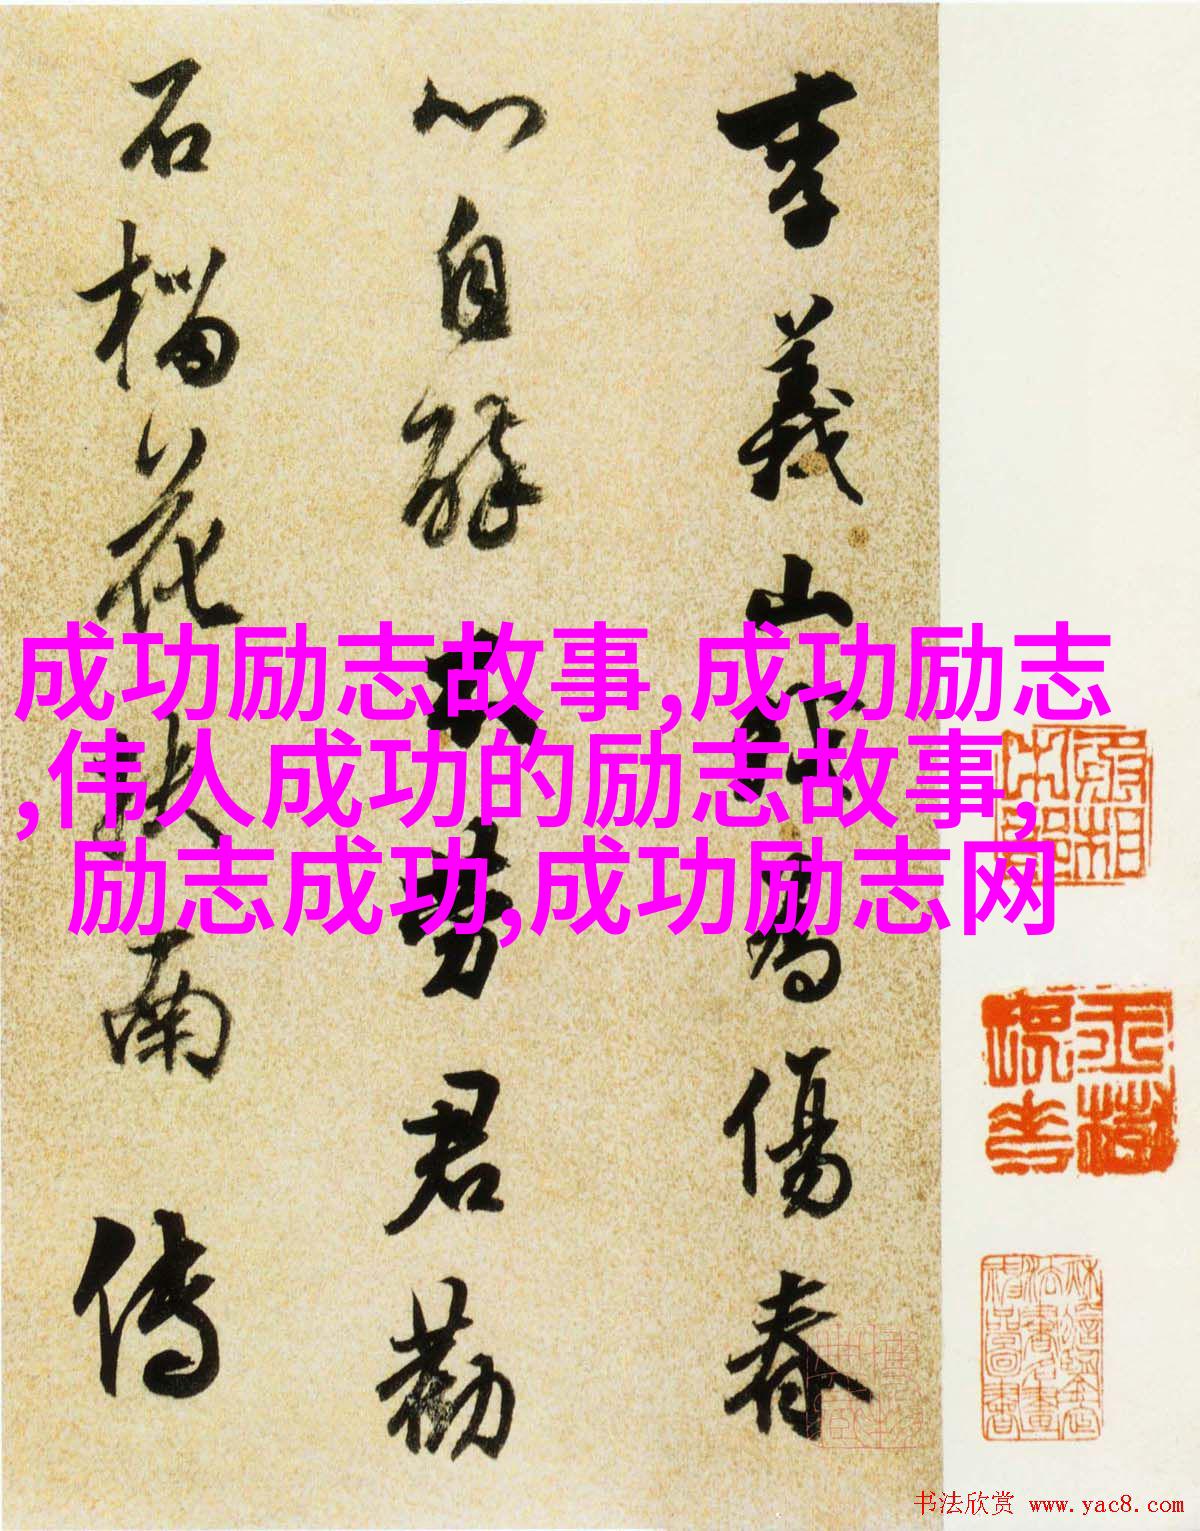 李義山為傷春
心自醉不勞君勸
石榴花扶南傳
成功励志故事,成功励志
,伟人成功的励志故事,
励志成功,成功励志网
书法欣赏 www.yac8.com